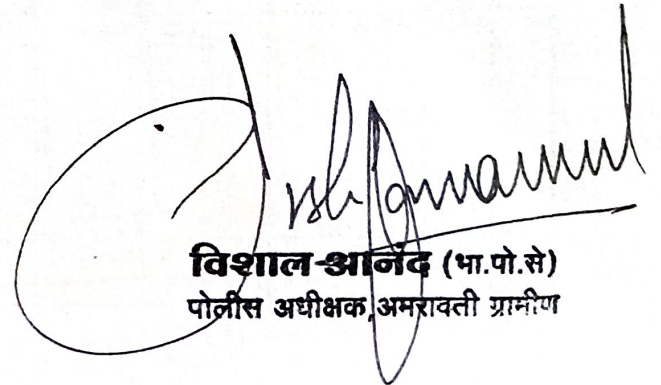 विशाल आनंद (भा.पो.से)
पोलीस अधीक्षक,अमरावती ग्रामीण